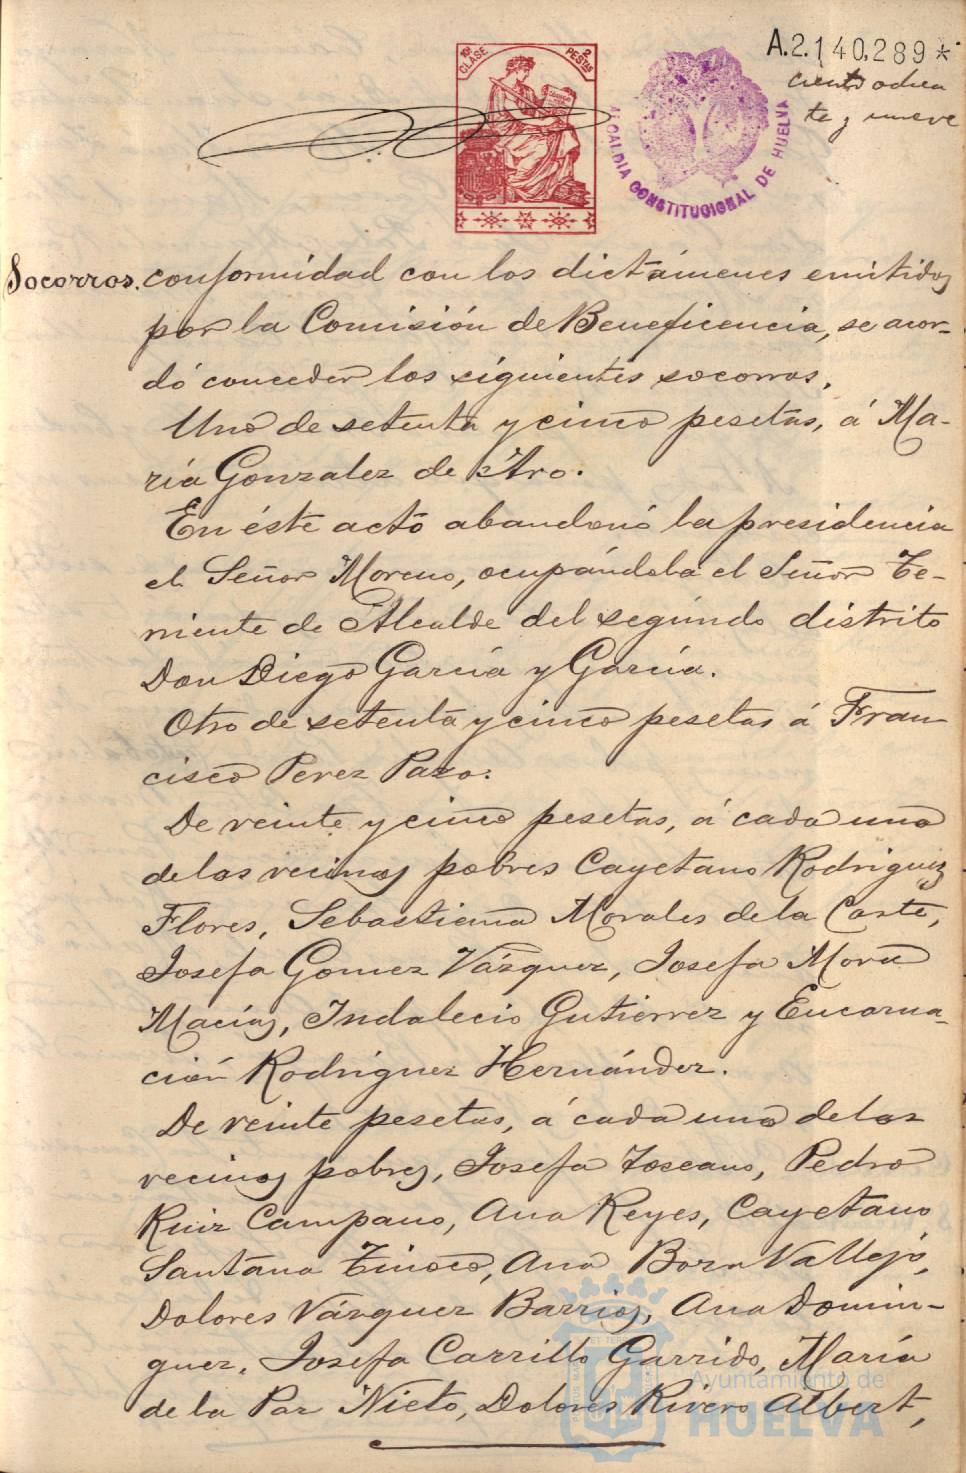 A.2.140,289*
ciento ochen
ta y nueve
10ª CLASE
2 PESTAS
ALCALDIA CONSTITUCIONAL DE HUELVA
Socorros. conformidad con los dictámenes emitidos
por la Comisión de Beneficencia, se acor-
dó conceder los siguientes socorros.
Uno de setenta y cinco pesetas, á Ma-
ría Gonzalez de Aro.
En éste acto abandonó la presidencia
el Señor Moreno, ocupándola el Señor Te-
niente de Alcalde del segundo distrito
Don Diego García y García.
Otro de setenta y cinco pesetas á Fran
cisco Perez Pazo.
De veinte y cinco pesetas, á cada uno
de los vecinos pobres Cayetano Rodriguez
Flores, Sebastiana Morales de la Corte,
Josefa Gomez Vázquez, Josefa Mora
Macías, Indalecio Gutierrez y Encarna-
ción Rodríguez Hernández.
De veinte pesetas, á cada uno de los
vecinos pobres, Josefa Toscano, Pedro
Ruiz Campano, Ana Reyes, Cayetano
Santana Tinoco, Ana Vallejo,
Dolores Vázquez Barrios, Ana Domin-
guez, Josefa Carrillo Garrido, María
de la Paz Nieto, Dolores Rivero Albert,
Ayuntamiento de
HUELVA